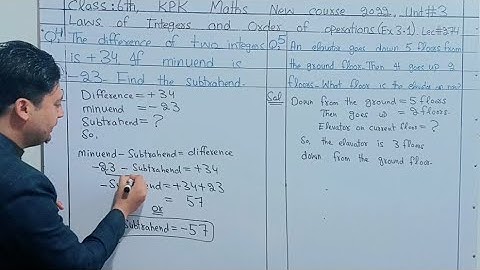 Class:6th, KPK Maths New course 2022, Unit#3
Laws of Integers and Order of operations (Ex 3.1) Lec#374
Q4 The difference of two integers
is +34 If minuend is
-23. Find the Subtrahend.
Difference = +34
minuend = -23
Subtrahend = ?
So,
Minuend - Subtrahend = difference
-23 - Subtrahend = +34
-Su hend = +34+23
= 57
or
Subtrahend = -57
Q5 An elevator goes down 5 floors from
the ground floor. Then it goes up 2
floors. What floor is the elevator on now?
Sol
Down from the ground = 5 floors
Then goes up = 2 floors.
Elevator on current floor = ?
So, the elavator is 3 floors
down from the ground floor.